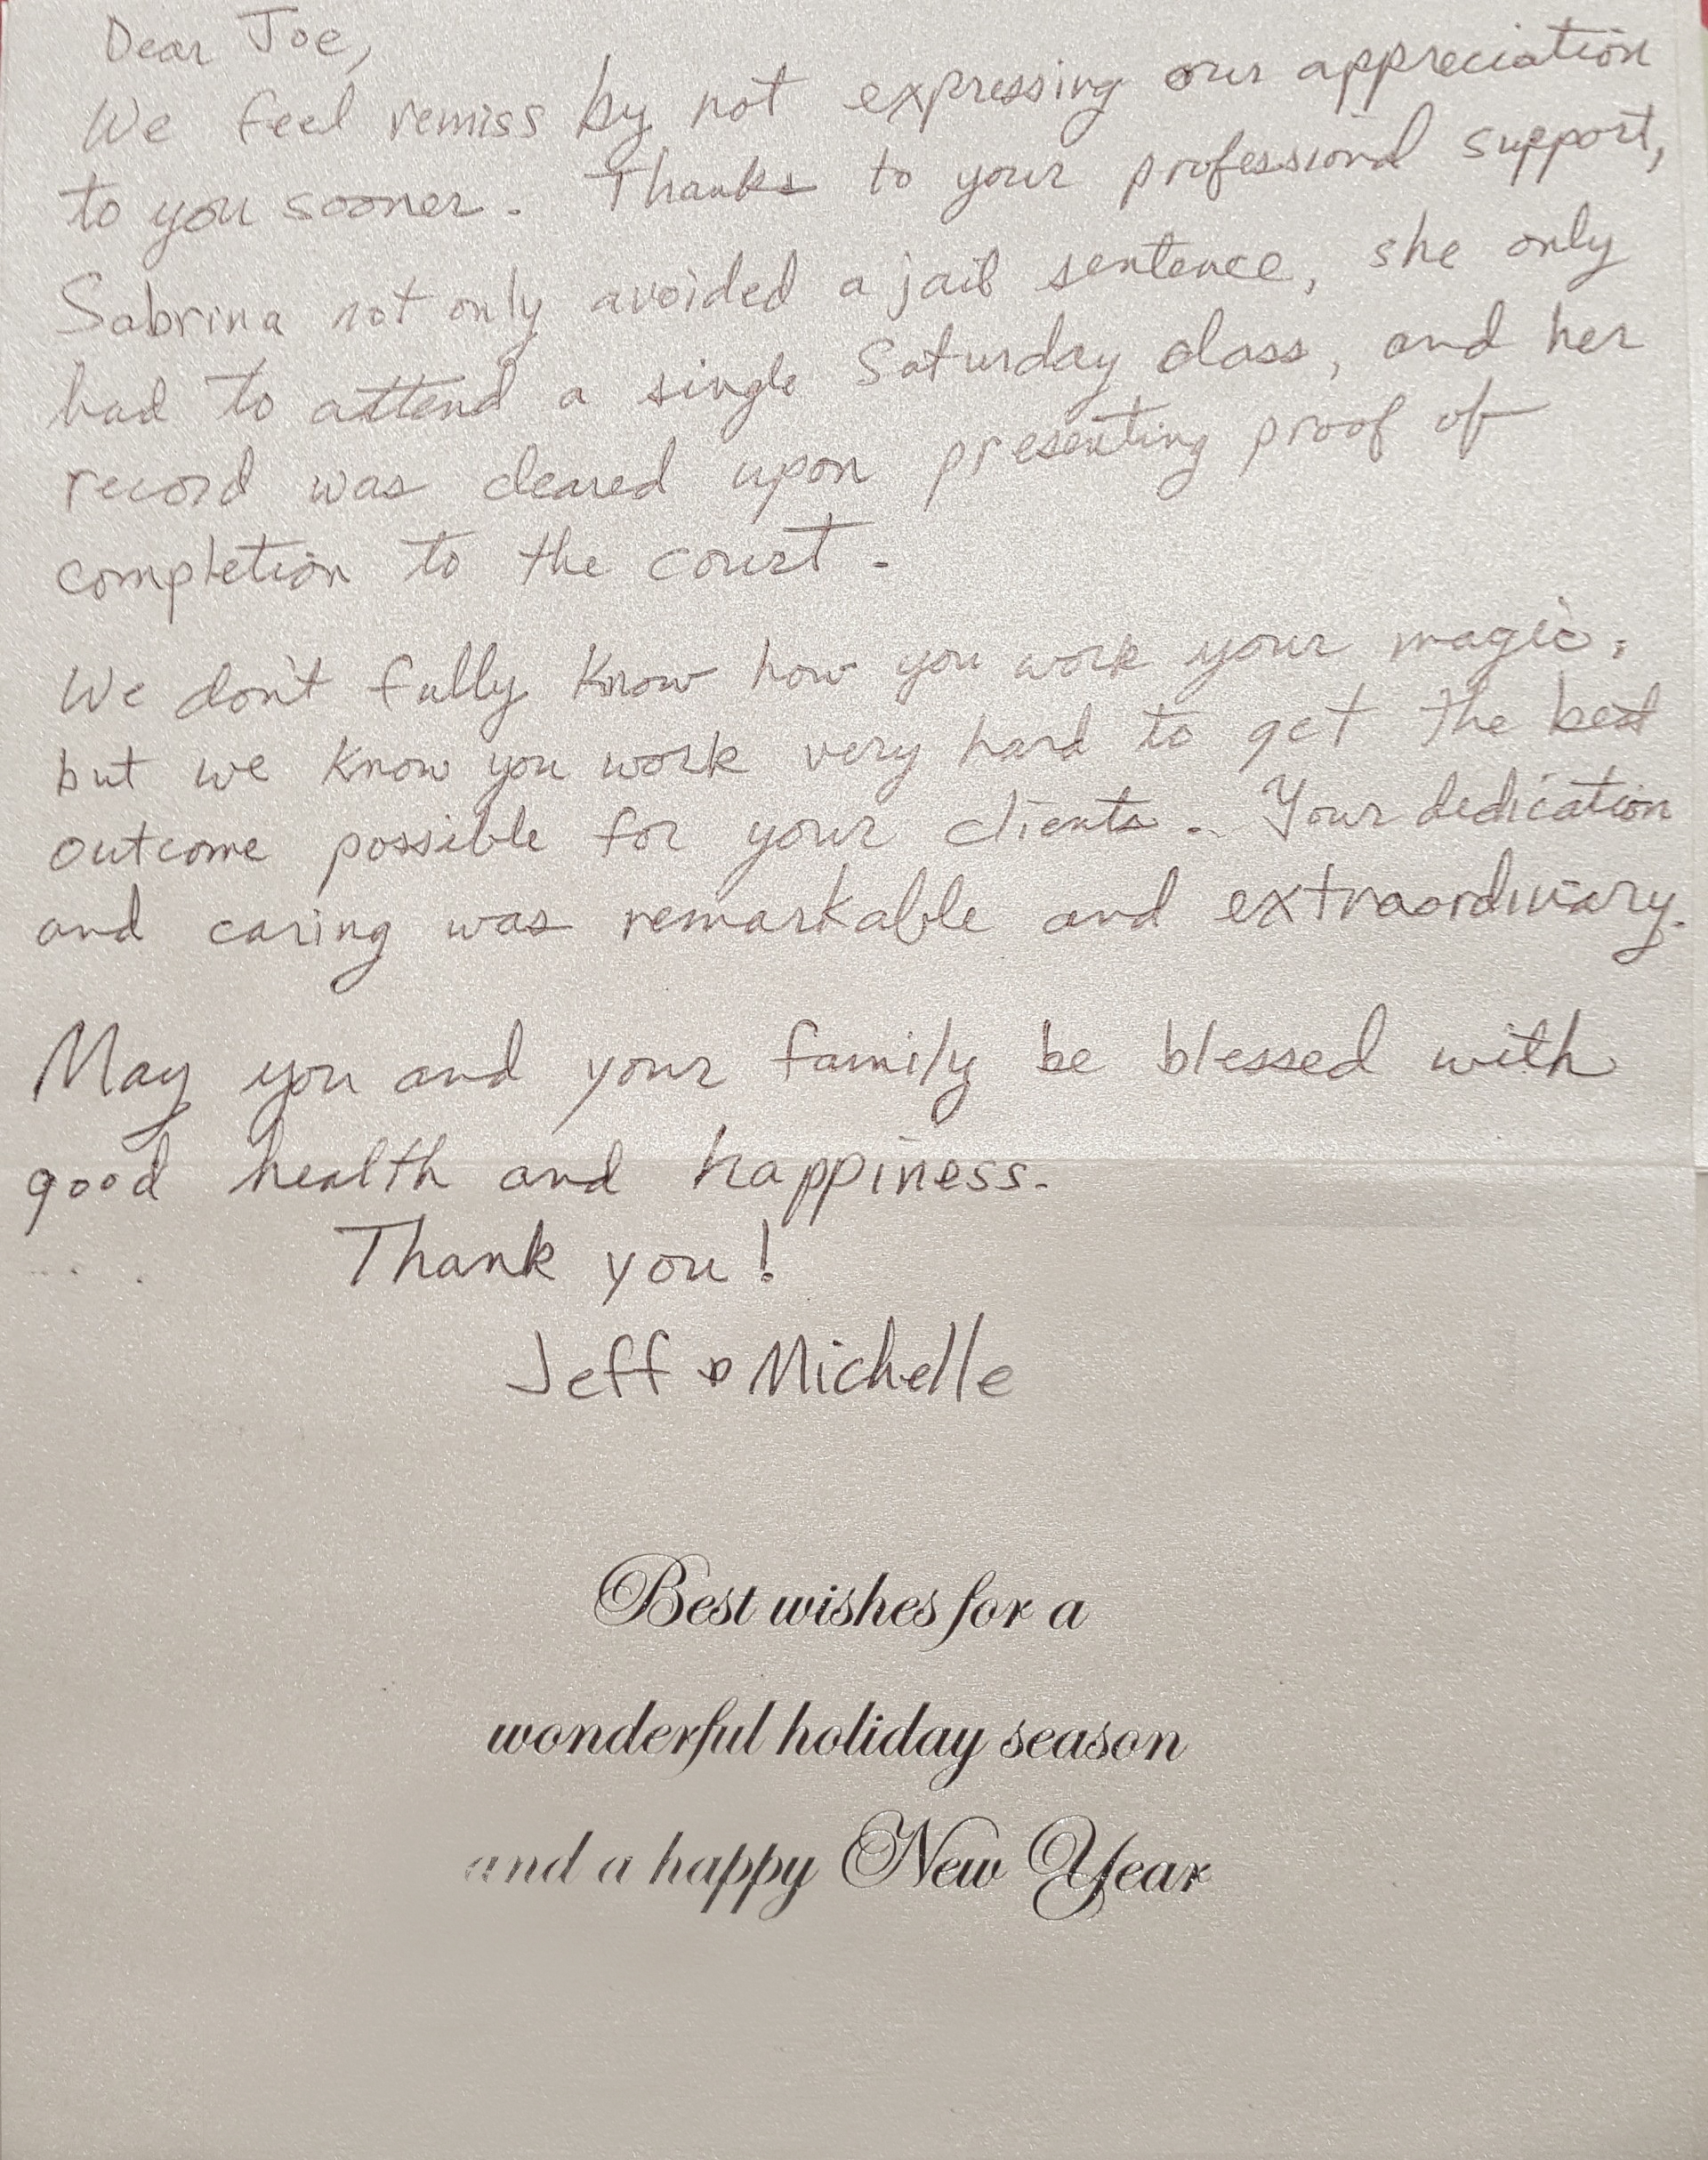 Dear Joe,
We feel remiss by not expressing our appreciation
to you sooner. Thanks to your professional support,
Sabrina not only avoided a jail sentence, she only
had to attend a single Saturday class, and her
record was cleared upon presenting proof of
completion to the court.
We don't fully know how you work your magic,
but we know you work very hard to get the best
outcome possible for your clients. Your dedication
and caring was remarkable and extraordinary.
May you and your family be blessed with
good health and happiness.
Thank you!
Jeff & Michelle
Best wishes for a
wonderful holiday season
and a happy New Year